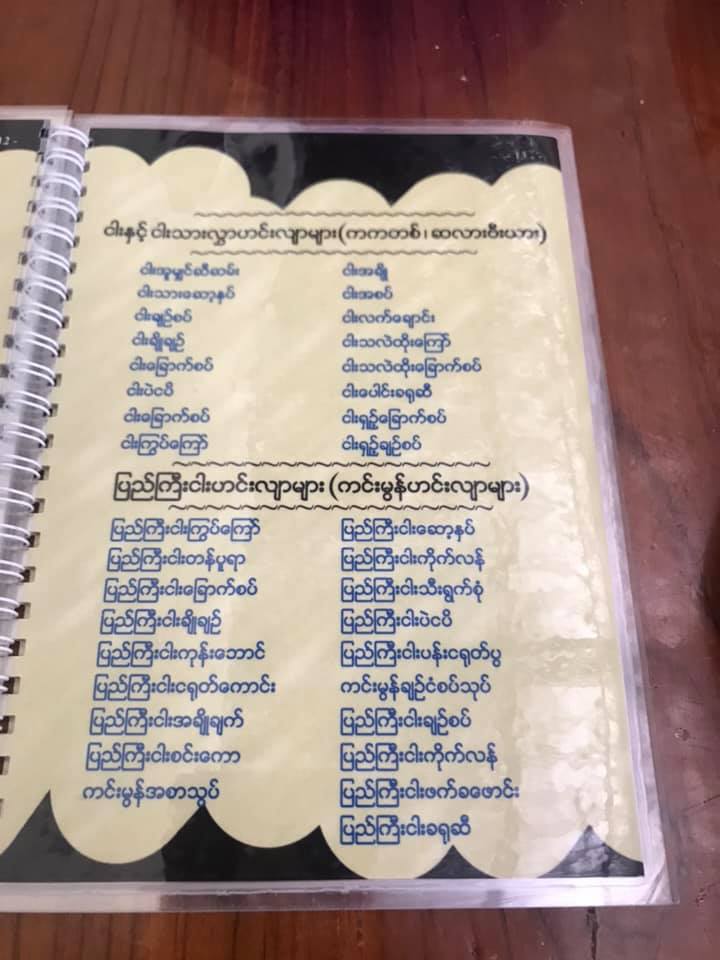 12 -
- 13 -
ငါးနှင့် ငါးသားလွှာဟင်းလျာများ(ကကတစ်၊ဆလားဗီးယား)
ငါးအူမျှင်ဆီဆမ်း
ငါးသားဆော့နပ်
ငါးချဉ်စပ်
ငါးချိုချဉ်
ငါးခြောက်စပ်
ငါးပဲငပိ
ငါးခြောက်စပ်
ငါးကြွပ်ကြော်
ငါးအချို
ငါးအစပ်
ငါးလက်ချောင်း
ငါးသလဲထိုးကြော်
ငါးသလဲထိုးခြောက်စပ်
ငါးပေါင်းခရုဆီ
ငါးရှဉ့်ခြောက်စပ်
ငါးရှဉ့်ချဉ်စပ်
ပြည်ကြီးငါးဟင်းလျာများ (ကင်းမွန်ဟင်းလျာများ)
ပြည်ကြီးငါးကြွပ်ကြော်
ပြည်ကြီးငါးတန်ပူရာ
ပြည်ကြီးငါးခြောက်စပ်
ပြည်ကြီးငါးချိုချဉ်
ပြည်ကြီးငါးကုန်းဘောင်
ပြည်ကြီးငါးငရုတ်ကောင်း
ပြည်ကြီးငါးအချိုချက်
ပြည်ကြီးငါးစင်းကော
ကင်းမွန်အစာသွပ်
ပြည်ကြီးငါးဆော့နပ်
ပြည်ကြီးငါးကိုက်လန်
ပြည်ကြီးငါးသီးရွက်စုံ
ပြည်ကြီးငါးပဲငပိ
ပြည်ကြီးငါးပန်းငရုတ်ပွ
ကင်းမွန်ချဉ်ငံစပ်သုပ်
ပြည်ကြီးငါးချဉ်စပ်
ပြည်ကြီးငါးကိုက်လန်
ပြည်ကြီးငါးဖက်ခဖောင်း
ပြည်ကြီးငါးခရုဆီ